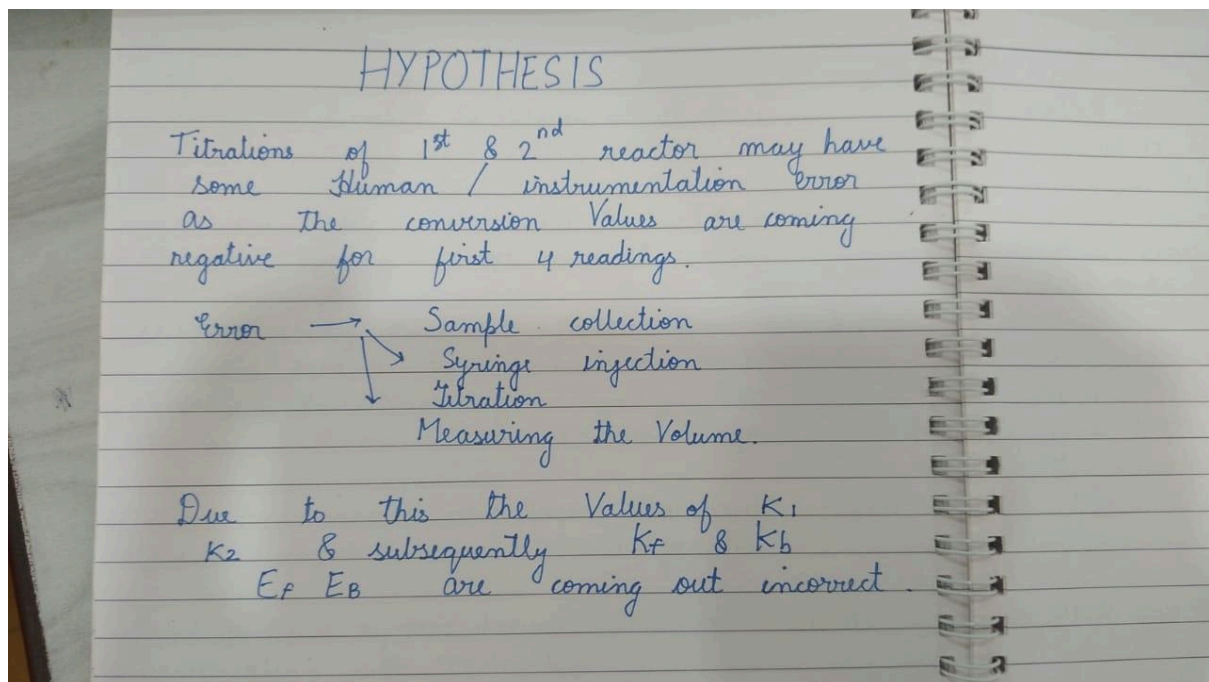 HYPOTHESIS
Titrations of 1st & 2nd reactor may have
some Human / instrumentation error
as the conversion Values are coming
negative for first 4 readings.
Error → Sample collection
Syringe injection
Titration
Measuring the Volume.
Due to this the Values of K1
K2 & subsequently Kf & Kb
Ef EB are coming out incorrect.